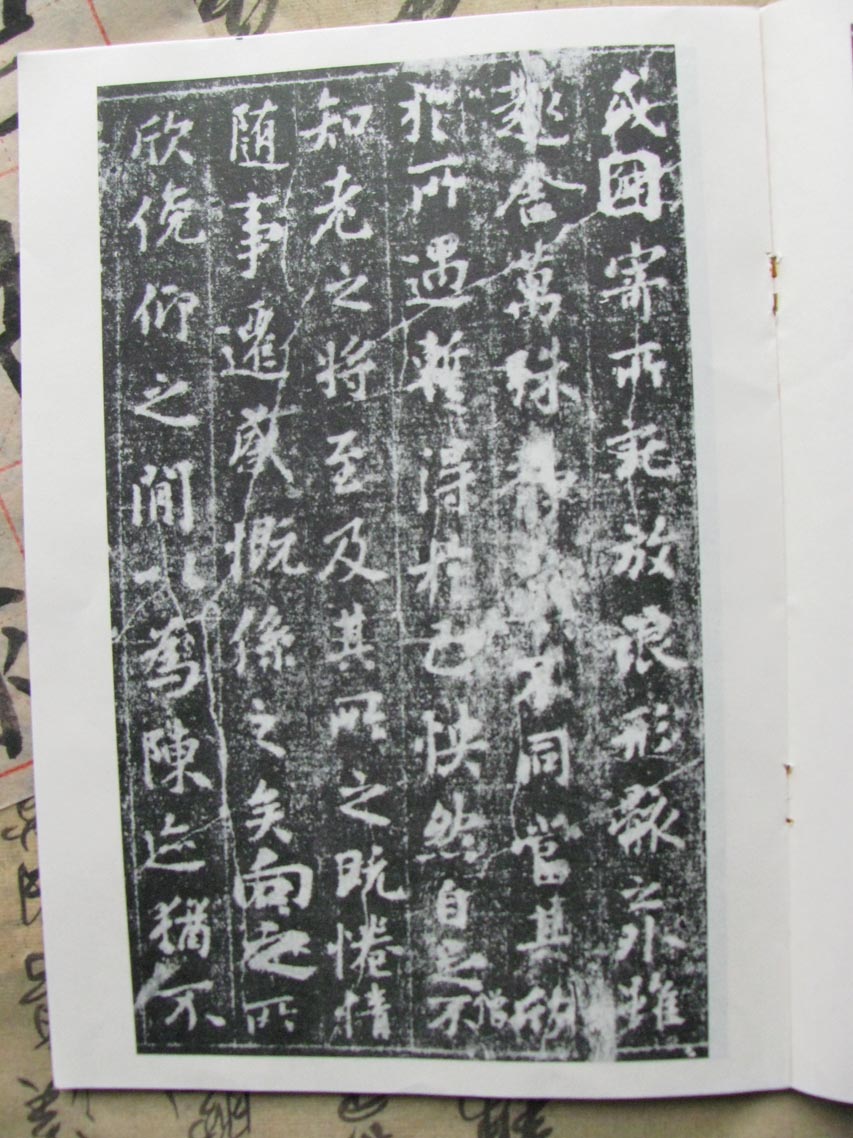 或因寄所託放浪形骸之外雖
趣舍萬殊静躁不同當其欣
於所遇暫得於己怏然自足不
僧
知老之將至及其所之既惓情
隨事遷感慨係之矣向之所
欣俛仰之閒以為陳迹猶不